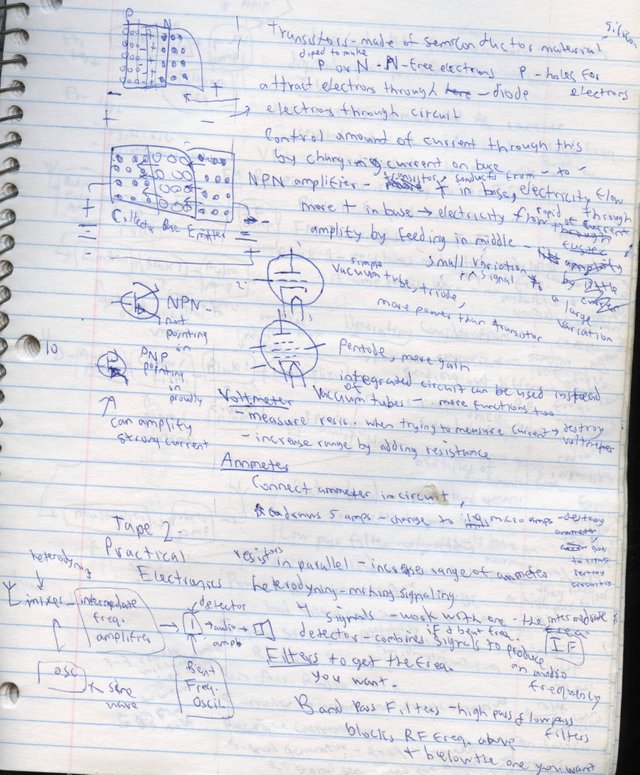 P N
Silicon
Transistors - made of semiconductor material
doped to make
P or N - N-free electrons P - holes for
electrons
attract electrons through - diode
electrons through circuit
Control amount of current through this
by changing current on base
NPN amplifier - transistor conducts from - to -
+ in base, electricity flow
more + in base → electricity flow rapid through
amplify by feeding in middle -
small variation
in signal
a large
variation
Collector Base Emitter
simple
vacuum tube, triode,
more power than transistor
NPN -
not
pointing
in
10
PNP
pointing
in
proudly
Pentode, more gain
integrated circuit can be used instead
of vacuum tubes - more functions too
can amplify
strong current
Voltmeter
- measure resis. when trying to measure current → destroy
voltmeter
- increase range by adding resistance
Ammeter
Connect ammeter in circuit,
5 amps - change to micro amps - destroy
ammeter
Tape 2
Practical
Electronics
resistors
in parallel - increases range of ammeter
heterodyning - mixing signaling
heterodyning
mixer
intermediate
freq.
amplifier
detector
audio
amp
OSC
sine
wave
Beat
Freq.
Oscil.
4 signals - work with one - the intermediate
freq.
IF
if a beat freq.
detector - combines signals to produce
an audio
frequency
Filters to get the freq.
you want.
Band pass Filters - high pass & low pass
filters
blocks RF freq. above
+ below the one you want